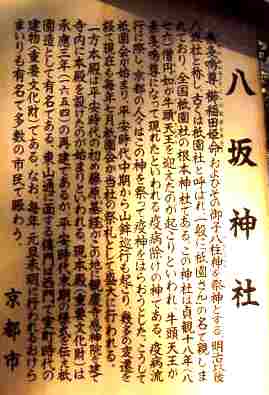 八坂神社
素戔嗚尊、櫛稲田姫命およびその御子八柱神を祭神とする。明治以後
八坂神社と称し、古くは祇園社と呼ばれ、一般に祇園さんの名で親しま
れており、全国祇園社の根本神社である。この神社は貞観十八年(八
七六)僧円如が牛頭天王を迎えたのが起こりといわれ、牛頭天王が
素戔嗚尊になって現われたといわれる疫病除けの神である。疫病流
行に際し、京都の人々はこの神を祭って疫神をはらおうとした。こうして
祇園祭が始まり、平安時代中期から山鉾巡行も起こり、幾多の変遷を
経て、現在も毎年七月祇園会が当社の祭礼として盛大に行われる。
一方、本殿は平安時代の初め藤原基経がこの地に観慶寺感神院を建て
寺内に本殿を設けたのが始まりといわれる。現本殿(重要文化財)は、
承応三年(一六五四)の再建であるが、平安時代末期の様式を伝え祇
園造として有名である。東山通に面する楼門は、すべて室町時代の
建物(重要文化財)である。なお、毎年、元旦未明に行われるおけら
まいりも有名で多数の市民で賑わう。
京都市